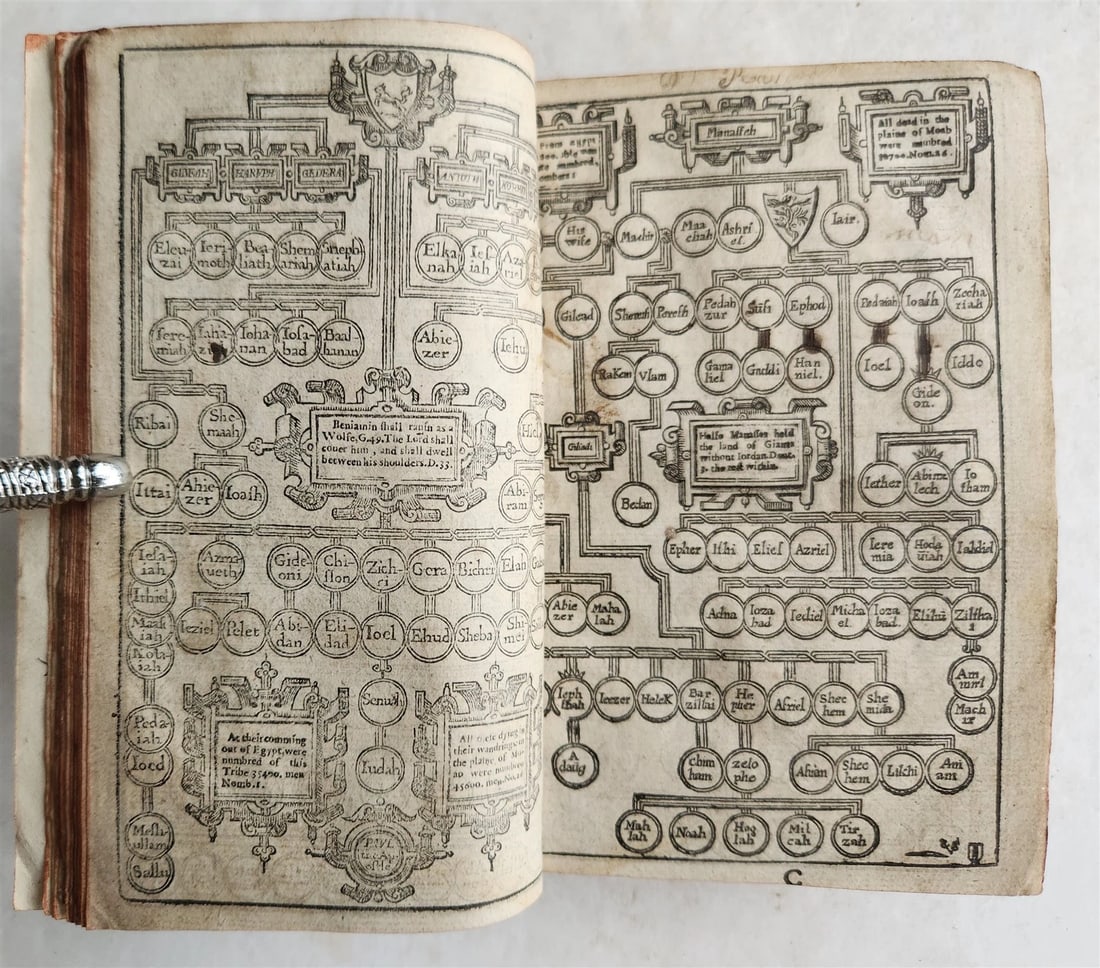 GIBEAH HARVPH GEDERA
ANTOTH
Eleu-
zai
Ieri-
moth
Bea-
liath
Shem
ariah
Sheph
atiah
Elka
nah
Ies-
iah
Aza-
riel
Iere-
miah
Iaha-
Ioha-
nan
Iosa-
bad
Baal-
hanan
Abie-
zer
Iehu
Ribai
She-
maah
Beniamin shall rauin as a
Wolfe, G.49. The Lord shall
couer him, and shall dwell
between his shoulders. D.33.
Ittai
Ahie-
zer
Ioash
Abi-
ram
Iesa-
iah
Azma-
ueth
Gide-
oni
Chi-
slon
Zich-
ri
Gera
Bichri
Elah
Ithiel
Maas
iah
Ieziel
Pelet
Abi-
dan
Eli-
dad
Ioel
Ehud
Sheba
Shi-
mei
Kola-
iah
Peda-
iah
Ioed
Senuah
Iudah
At their comming
out of Egypt, were
numbred of this
Tribe 35400. men
Nomb.1.
All these dying in
their wandrings in
the plaine of Mo-
ab were numbred
45600. men. No. 26
Mesh-
ullam
Sallu
PAVL
the Apo
stle
Manasseh
All dead in the
plaine of Moab
were numbred
52700. Nom. 26.
His
wife
Machir
Maa
chah
Ashri
el.
Iair.
Gilead
Sheresh
Peresh
Pedah
zur
Susi
Ephod
Pedaiah
Ioash
Zecha
riah
Rakem
Vlam
Gama
liel
Gaddi
Han
niel.
Ioel
Gide
on.
Iddo
Gilead
Halfe Manasses held
the land of Giants
without Iordan. Deut.
3. the rest within.
Bedan
Iether
Abime
lech
Io
tham
Epher
Ishi
Eliel
Azriel
Iere
mia
Hoda
uiah
Iahdiel
Abie
zer
Maha
lah
Adna
Ioza
bad
Iediel
Micha
el.
Ioza
bad.
Elihu
Ziltha
i
Am
mri
Mach
ir
Ieph
thah
Ieezer
Helek
Bar
zillai
He
pher
Asriel
Shec
hem
She
mida
A
daug
Chim
ham
zelo
phe
Ahian
Shec
hem
Likhi
Ani
am
Mah
lah
Noah
Hog
lah
Mil
cah
Tir
zah
C